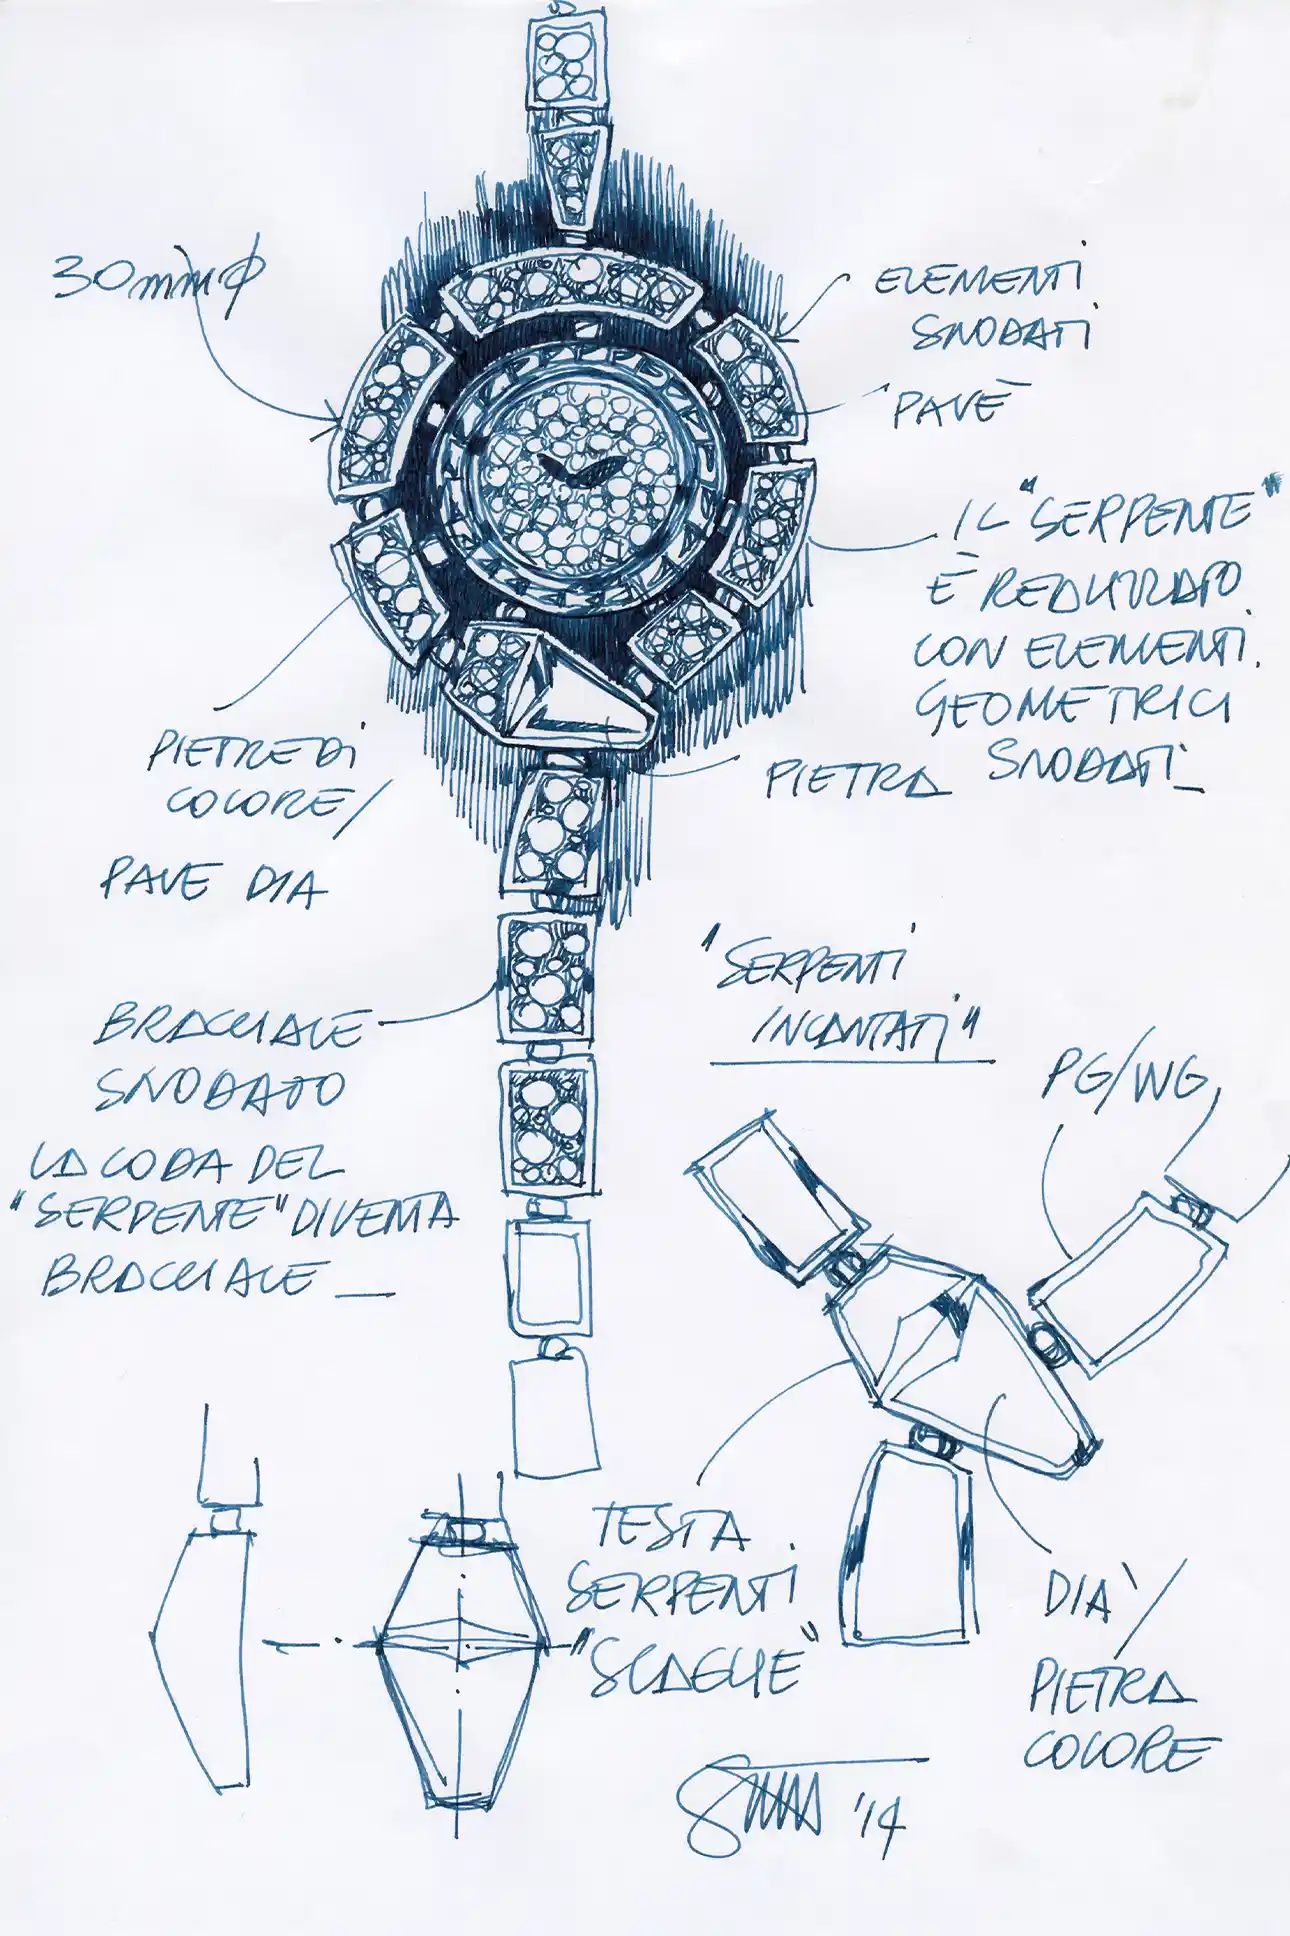 30mm ϕ
ELEMENTI
SNODATI
PAVÈ
IL "SERPENTE"
È REALIZZATO
CON ELEMENTI
GEOMETRICI
SNODATI_
PIETRE DI
COLORE/
PAVE DIA
PIETRA
BRACCIALE
SNODATO
LA CODA DEL
"SERPENTE" DIVENTA
BRACCIALE _
"SERPENTI
INCANTATI"
PG/WG
TESTA
SERPENTI
"SCAGLIE"
DIA'/
PIETRA
COLORE
'14